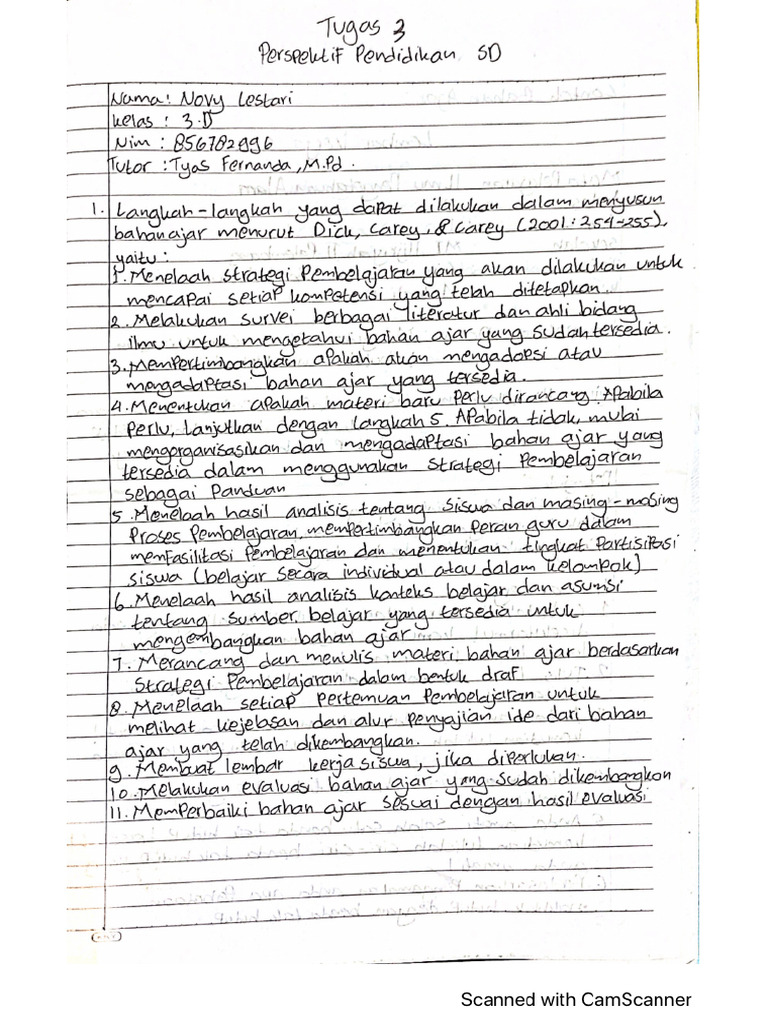 Tugas 3
Perspektif Pendidikan SD
Nama: Novy Lestari
Kelas : 3.D
Nim : 856782996
Tutor : Tyas Fernanda, M.Pd.
1. Langkah-langkah yang dapat dilakukan dalam menyusun
bahan ajar menurut Dick, Carey, & Carey (2001:254-255),
yaitu:
1. Menelaah strategi Pembelajaran yang akan dilakukan untuk
mencapai setiap kompetensi yang telah ditetapkan.
2. Melakukan survei berbagai literatur dan ahli bidang
ilmu untuk mengetahui bahan ajar yang sudah tersedia.
3. Mempertimbangkan apakah akan mengadopsi atau
mengadaptasi bahan ajar yang tersedia.
4. Menentukan apakah materi baru Perlu dirancang. Apabila
Perlu, lanjutkan dengan langkah 5. Apabila tidak, mulai
mengorganisasikan dan mengadaptasi bahan ajar yang
tersedia dalam menggunakan strategi Pembelajaran
sebagai Panduan
5. Menelaah hasil analisis tentang siswa dan masing-masing
Proses Pembelajaran, mempertimbangkan peran guru dalam
memfasilitasi Pembelajaran dan menentukan tingkat Partisipasi
siswa (belajar secara individual atau dalam kelompok)
6. Menelaah hasil analisis konteks belajar dan asumsi
tentang sumber belajar yang tersedia untuk
mengembangkan bahan ajar
7. Merancang dan menulis materi bahan ajar berdasarkan
Strategi Pembelajaran dalam bentuk draf
8. Menelaah setiap Pertemuan Pembelajaran untuk
melihat kejelasan dan alur penyajian ide dari bahan
ajar yang telah dikembangkan.
9. Membuat lembar kerja siswa, jika diperlukan.
10. Melakukan evaluasi bahan ajar yang sudah dikembangkan
11. Memperbaiki bahan ajar sesuai dengan hasil evaluasi
Scanned with CamScanner